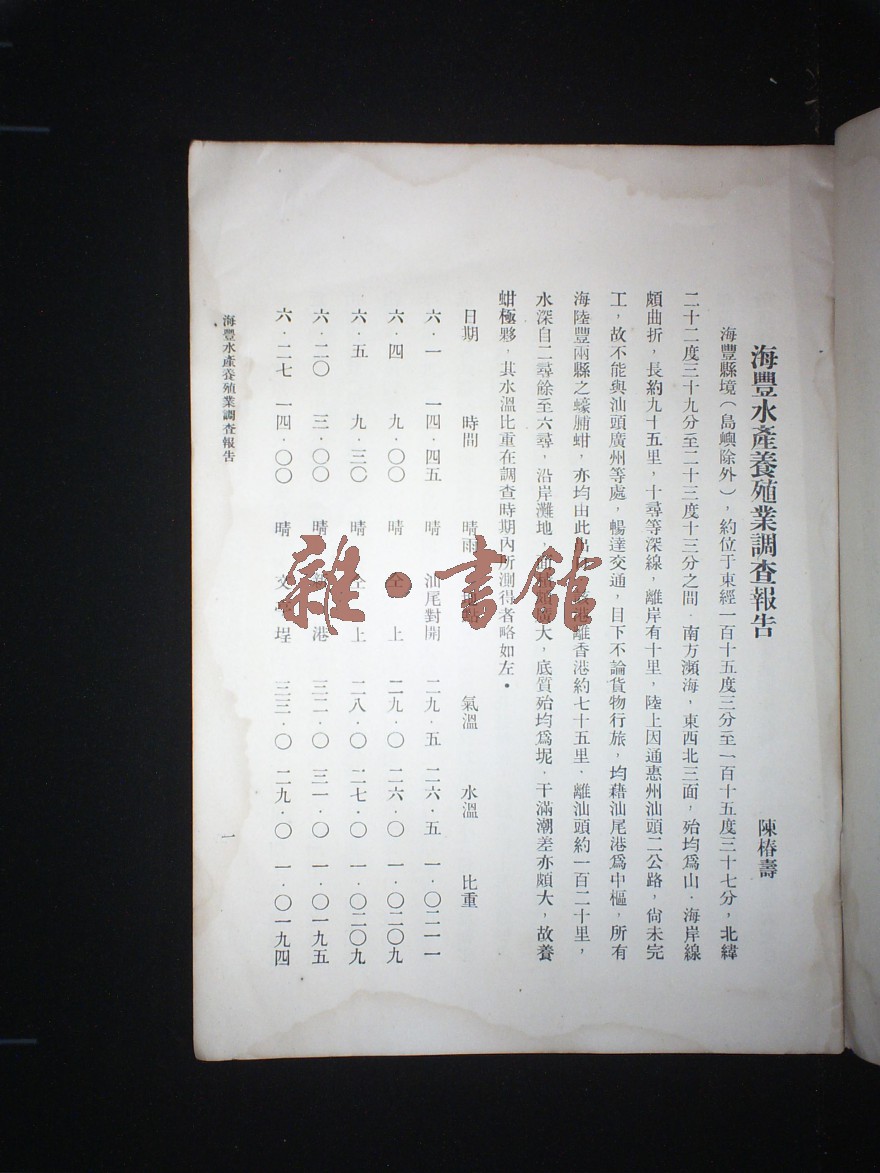 海豐水產養殖業調查報告
陳椿壽
海豐縣境(島嶼除外),約位于東經一百十五度三分至一百十五度三十七分,北緯
二十二度三十九分至二十三度十三分之間.南方瀕海,東西北三面,殆均為山.海岸線
頗曲折,長約九十五里,十尋等深線,離岸有十里,陸上因通惠州汕頭二公路,尙未完
工,故不能與汕頭廣州等處,暢達交通,目下不論貨物行旅,均藉汕尾港為中樞,所有
海陸豐兩縣之蠔脯蚶,亦均由此出 港離香港約七十五里.離汕頭約一百二十里,
水深自二尋餘至六尋,沿岸灘地, 大,底質殆均為坭.干滿潮差亦頗大,故養
蚶極夥,其水溫比重在調查時期內所測得者略如左.
日期 時間 晴雨 地點 氣溫 水溫 比重
六.一 一四.四五 晴 汕尾對開 二九.五 二六.五 一.〇二一一
六.四 九.〇〇 晴 仝上 二九.〇 二六.〇 一.〇二〇九
六.五 九.三〇 晴 仝上 二八.〇 二七.〇 一.〇二〇九
六.二〇 三.〇〇 晴 港 三二.〇 三一.〇 一.〇一九五
六.二七 一四.〇〇 晴 文 埕 三三.〇 二九.〇 一.〇一九四
海豐水產養殖業調查報告
一
雜·書館